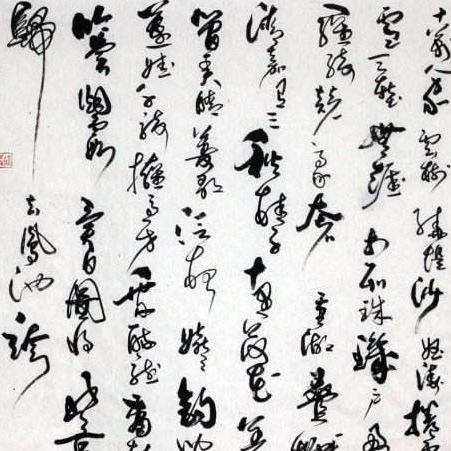 十萬人家雲樹繞堤沙怒濤捲
雪天塹無涯市列珠璣戶盈
羅綺競豪奢重湖疊巘
清嘉有三秋桂子十里荷花羌
管弄晴菱歌泛夜嬉嬉釣叟
蓮娃千騎擁高牙乘醉聽簫鼓
吟賞煙霞異日圖將好景
歸去鳳池誇